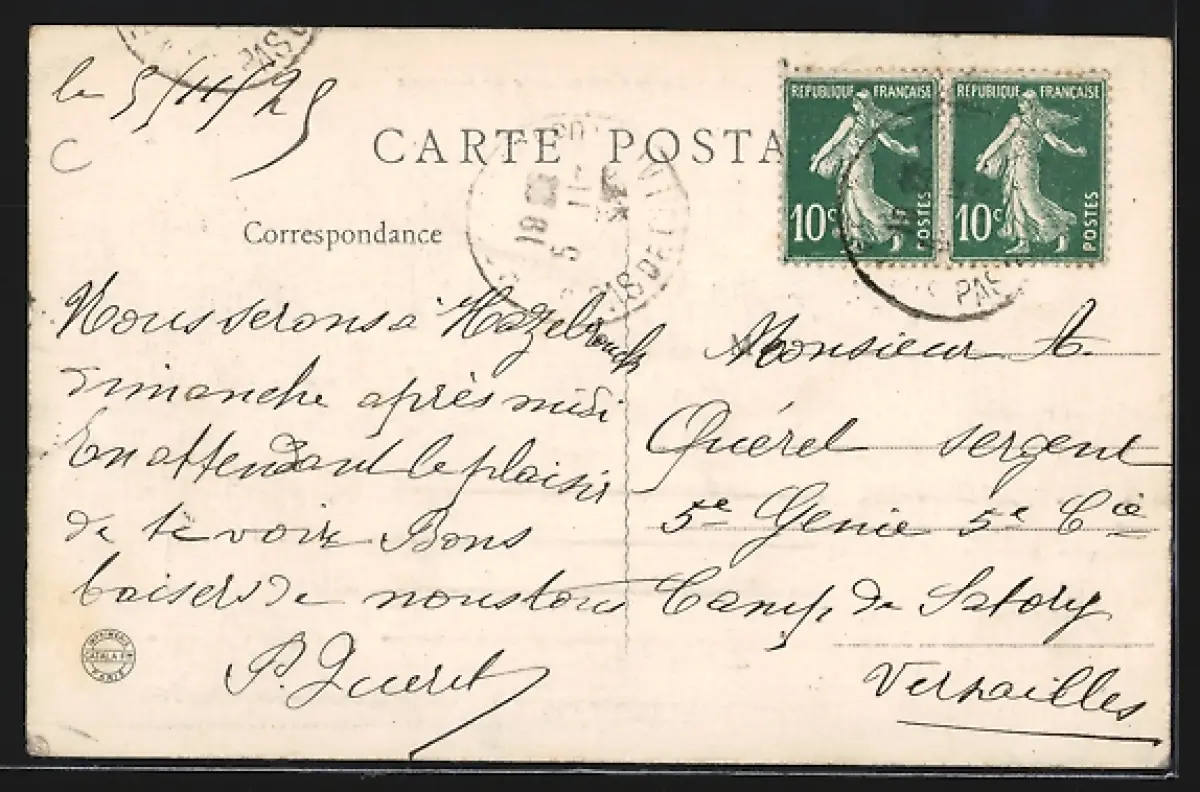 le 5/11/25
C
CARTE POSTA
Correspondance
RÉPUBLIQUE FRANÇAISE
10c POSTES
RÉPUBLIQUE FRANÇAISE
10c POSTES
18
5 - 11
PAS DE
PAS
Nous serons à Hazebrouck
dimanche après midi
En attendant le plaisir
de te voir Bons
baisers de nous tous
P. Quéret
Monsieur A.
Quéret sergent
5e Génie 5e Cie
Camp de Satory
Versailles
IMPRIMERIE
CATALA FR
PARIS